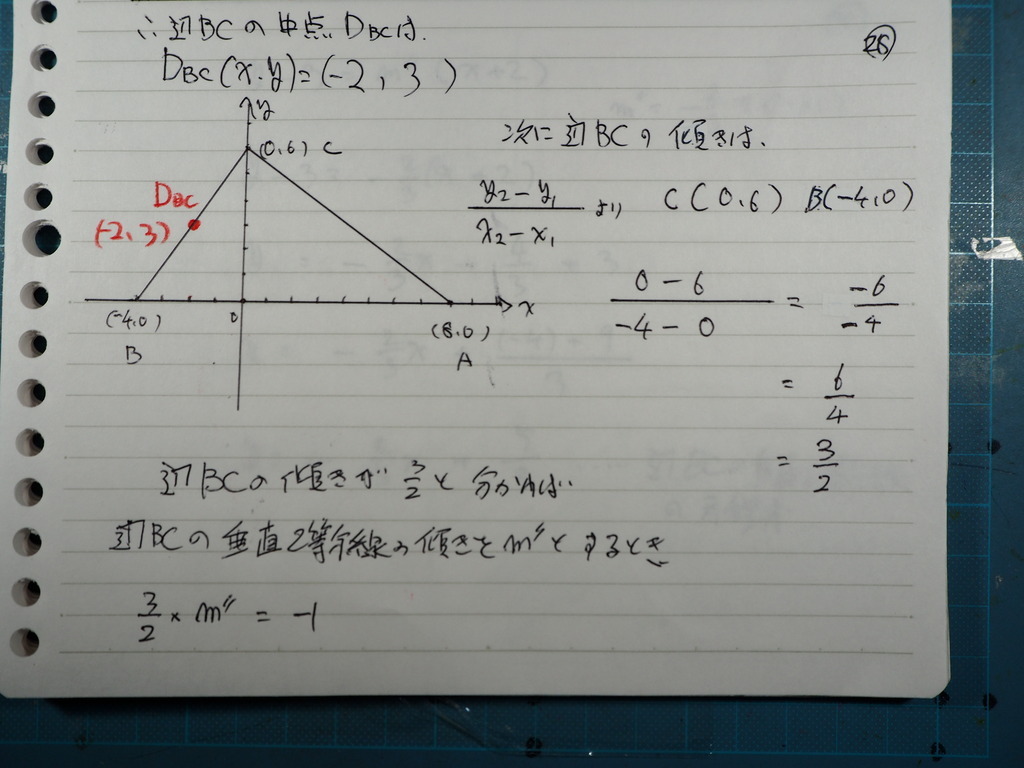 ∴辺BCの中点DBCは.
㉖
DBC(x.y)=(-2, 3)
y
(0.6) C
DBC
(-2.3)
(-4.0)
0
x
(8.0)
B
A
次に辺BCの傾きは、
y₂-y₁/x₂-x₁ より C(0.6) B(-4.0)
0-6/-4-0 = -6/-4
= 6/4
= 3/2
辺BCの傾きが 3/2と 分かれば
辺BCの垂直2等分線の傾きをm″とするとき
3/2 × m″ = -1